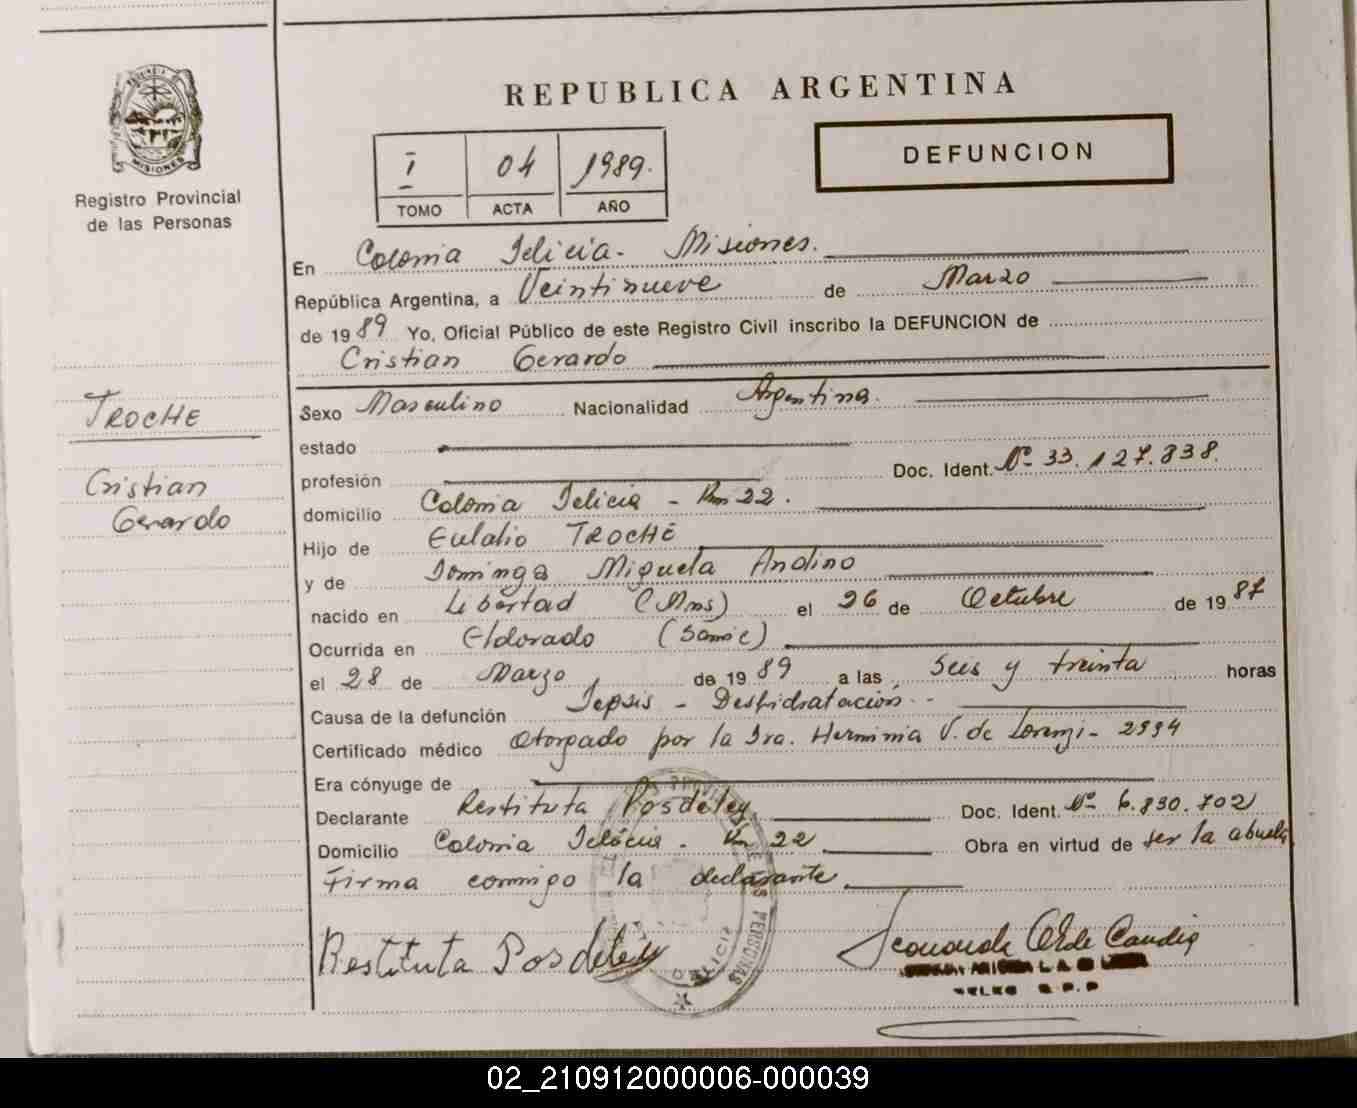 REPUBLICA ARGENTINA
PROVINCIA DE
MISIONES
Registro Provincial
de las Personas
I 04 1989.
TOMO ACTA AÑO
DEFUNCION
En Colonia Delicia - Misiones.
República Argentina, a Veintinueve de Marzo
de 1989 Yo, Oficial Público de este Registro Civil inscribo la DEFUNCION de
Cristian Gerardo
TROCHE
Cristian
Gerardo
Sexo Masculino Nacionalidad Argentina.
estado
profesión Doc. Ident. Nº 33.127.838.
domicilio Colonia Delicia - Km 22.
Hijo de Eulalio TROCHE
y de Dominga Miguela Andino
nacido en Libertad (Mns) el 26 de Octubre de 1987
Ocurrida en Eldorado (Samic)
el 28 de Marzo de 1989 a las Seis y treinta horas
Causa de la defunción Sepsis - Deshidratación.-
Certificado médico Otorgado por la Dra. Herminia V. de Lorenzi - 2994
Era cónyuge de
Declarante Restituta Posdeley Doc. Ident. Nº 6.830.702
Domicilio Colonia Delicia - Km 22 Obra en virtud de ser la abuela
Firma conmigo la declarante
Restituta Posdeley
DELICIA
02_210912000006-000039